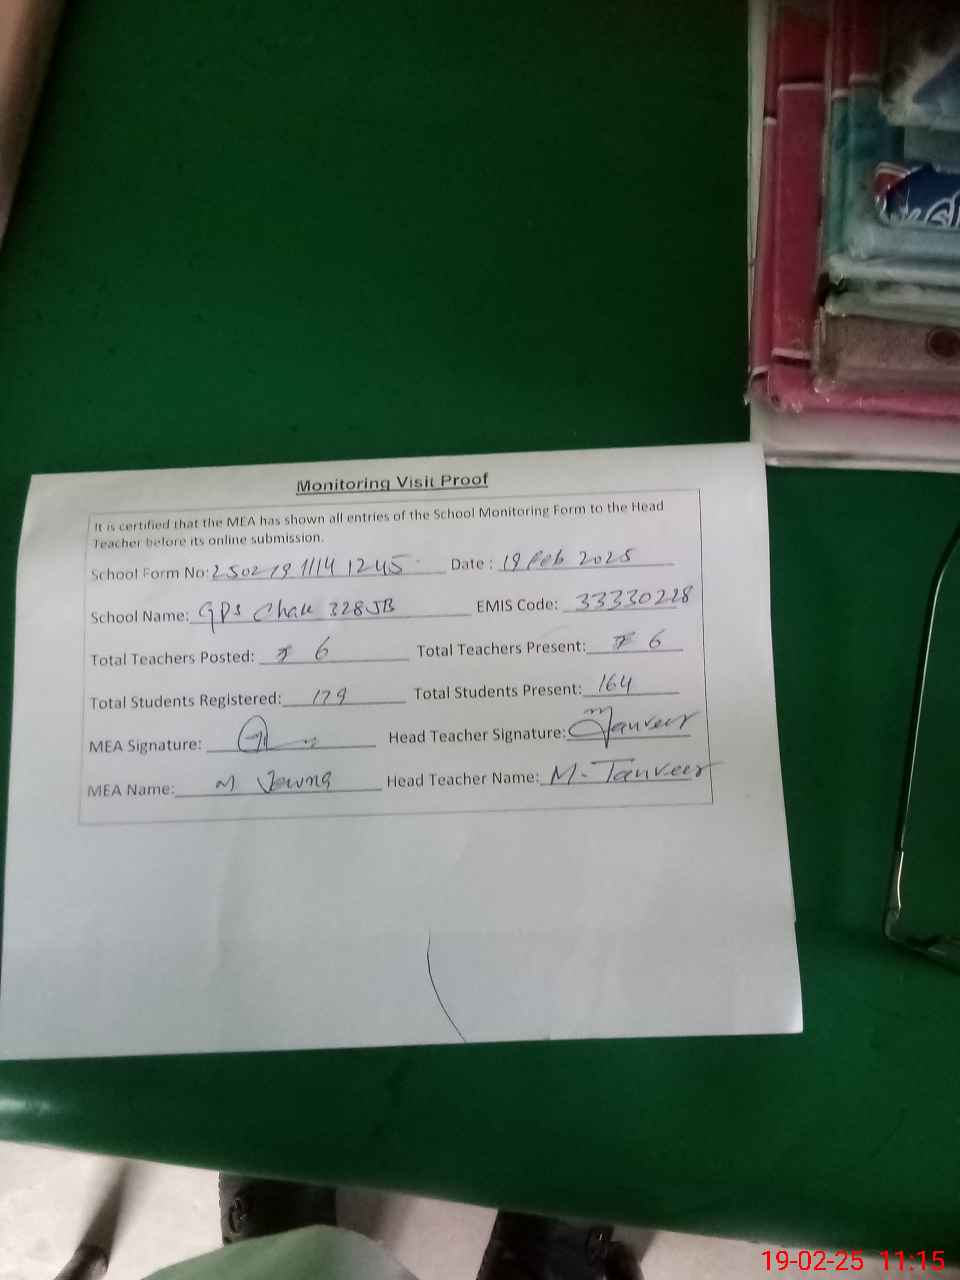 Monitoring Visit Proof
It is certified that the MEA has shown all entries of the School Monitoring Form to the Head
Teacher before its online submission.
School Form No: 250219 1114 1245 Date : 19 Feb 2025
School Name: GPS Chak 328JB EMIS Code: 33330228
Total Teachers Posted: 6 Total Teachers Present: 6
Total Students Registered: 179 Total Students Present: 164
MEA Signature: Head Teacher Signature: Tanveer
MEA Name: M Head Teacher Name: M. Tanveer
19-02-25 11:15